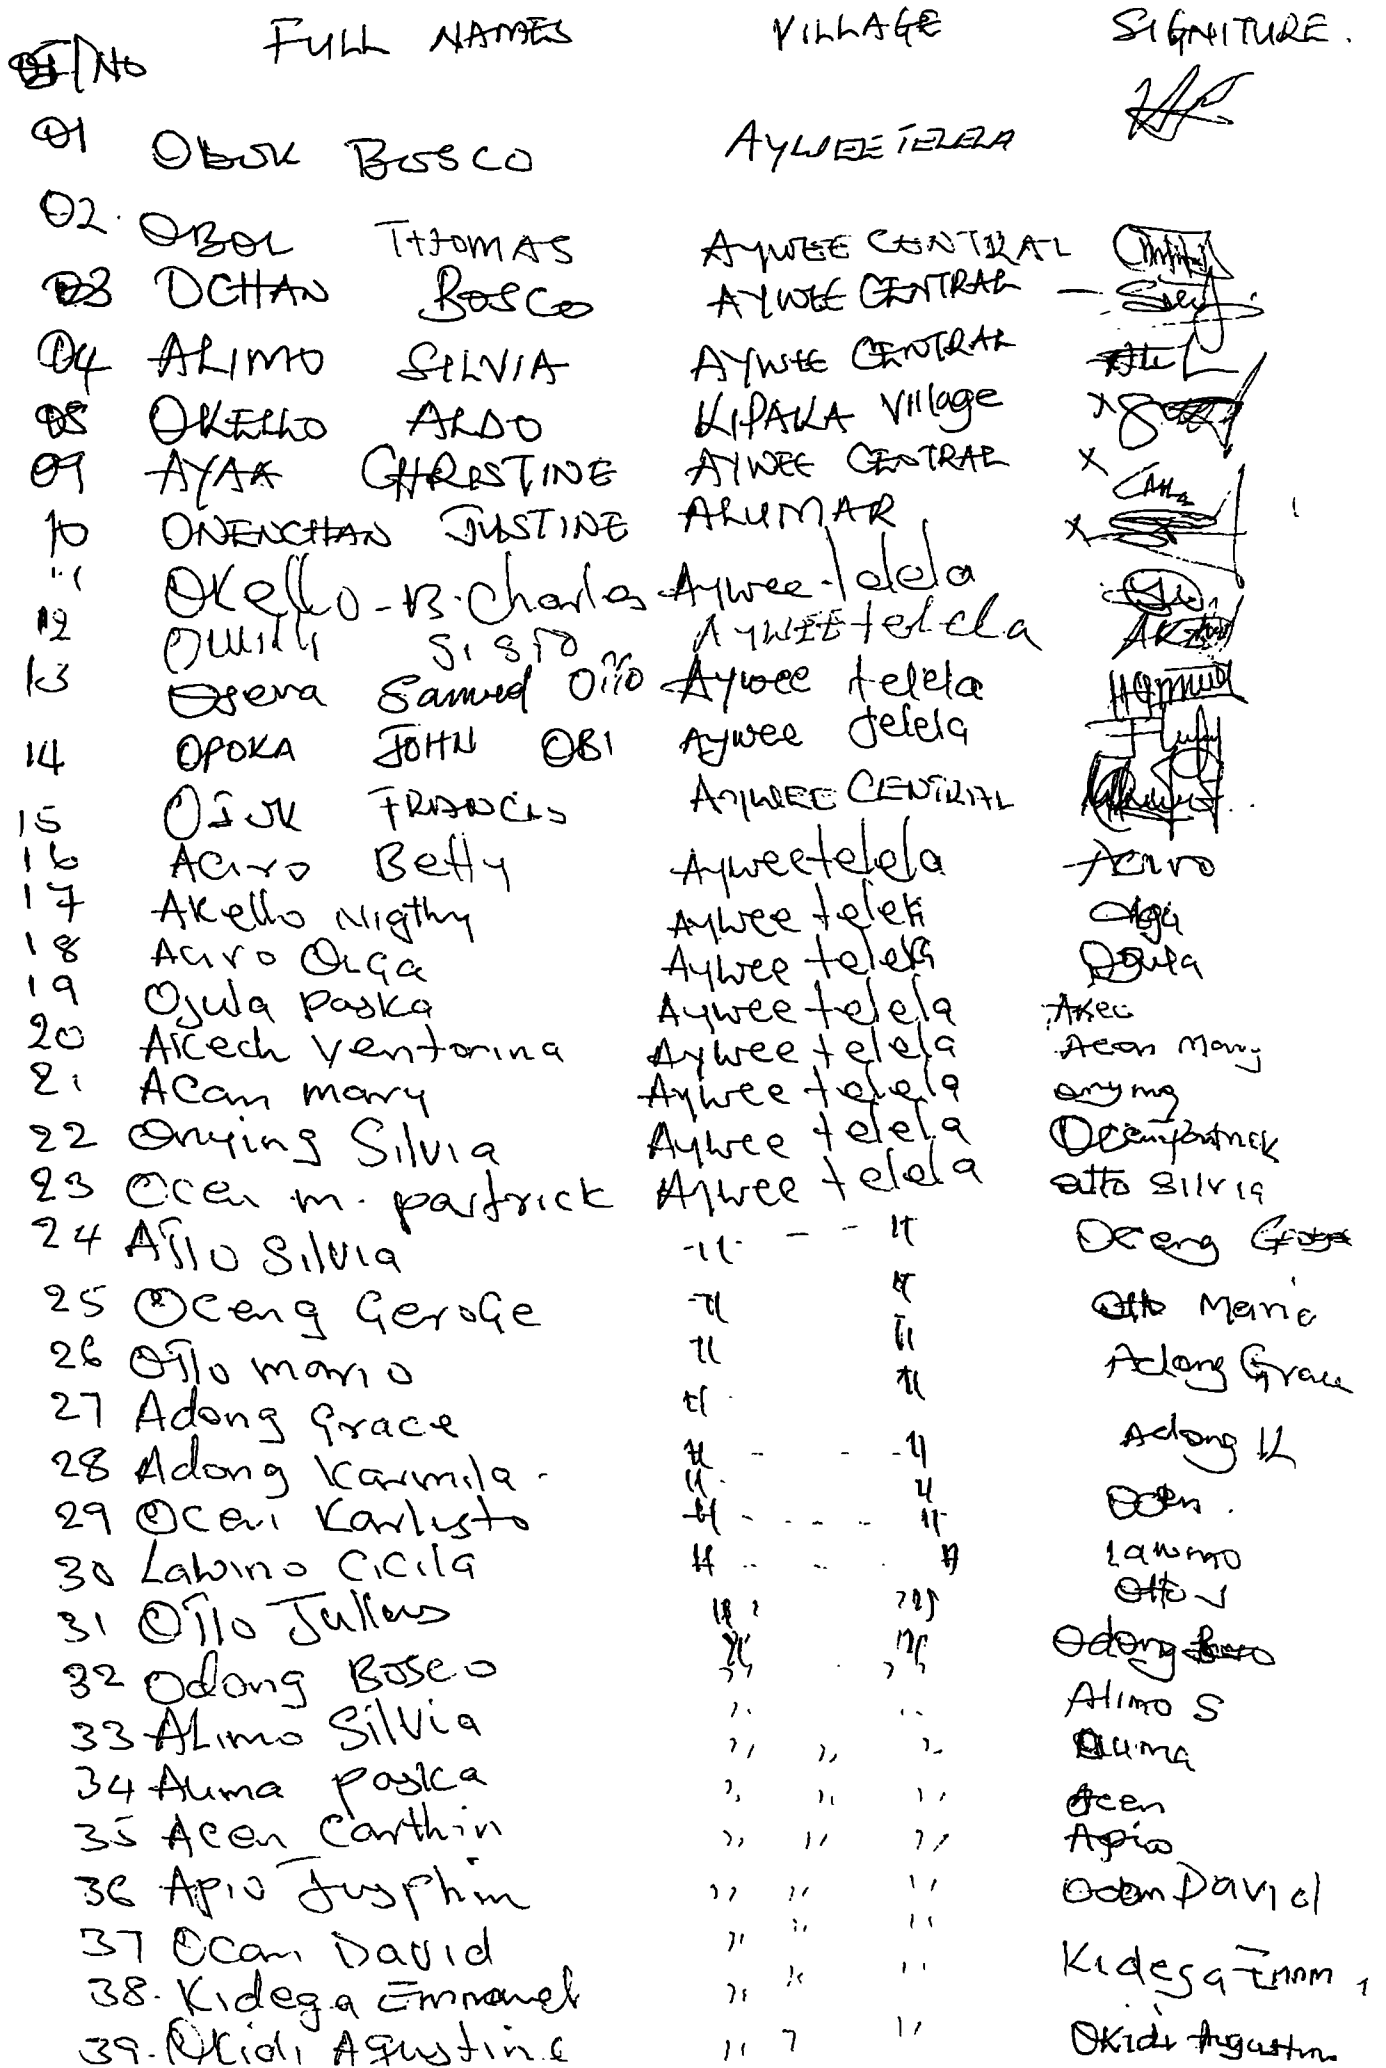 S/NO FULL NAMES VILLAGE SIGNITURE.
01 OBUK BOSCO AYWEE TELELA
02. OBOL THOMAS AYWEE CENTRAL
03 OCHAN BOSCO AYWEE CENTRAL -
04 ALIMO SILVIA AYWEE CENTRAL
08 OKELLO ALDO KIPAKA Village X
09 AYAA CHRISTINE AYWEE CENTRAL X
10 ONENCHAN JUSTINE ALUMAR X
11 Okello-B. Charles Aywee-telela
12 OWilli SISTO AYWEE telela
13 Ojera Samuel Otto Aywee telela
14 OPOKA JOHN OBI Aywee telela
15 OJUK FRANCIS AYWEE CENTRAL
16 Aciro Betty Ayweetelela Aciro
17 Akello Nigthy Aywee telela
18 Aciro OLGA Aywee telela
19 Ojula Paska Aywee telela Akec
20 Akech Ventorina Aywee telela Acan Mary
21 Acan mary Aywee telela anying
22 Onying Silvia Aywee telela Ocen Patrick
23 Ocen m. partrick Aywee telela atto Silvia
24 Atto Silvia -11- - - 11 Oceng
25 Oceng GeroGe 11 11 Otto Mario
26 Otto mario 11 11 Adong Grace
27 Adong Grace 11 11 Adong K
28 Adong Karmila - 11 - - - 11
29 Ocen Karlusto 11 - - - - 11 Ocen.
30 Lawino Cicila 11 - - 11 Lawino
31 Otto Julius 11 11 Otto J
32 Odong Bosco 11 11 Odong
33 ALimo Silvia ,, ,, Alimo S
34 Auma paska ,, ,, ,, Auma
35 Acen Carthin ,, ,, ,, Acen
36 Apio Jusphin ,, ,, ,, Apio
37 Ocan David ,, ,, ,, Ocan David
38. Kidega Emmanuel ,, ,, ,, Kidega Emm,
39. Okidi Agustine ,, ,, ,, Okidi Augustin